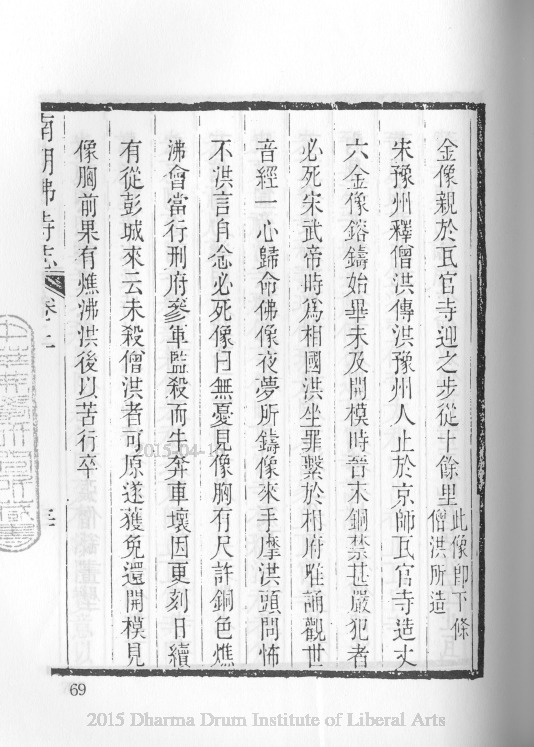 金像親於瓦官寺迎之步從十餘里此像卽下條
僧洪所造
宋豫州釋僧洪傳洪豫州人止於京師瓦官寺造丈
六金像鎔鑄始畢未及開模時晉末銅禁甚嚴犯者
必死宋武帝時爲相國洪坐罪繫於相府唯誦觀世
音經一心歸命佛像夜夢所鑄像來手摩洪頭問怖
不洪言自念必死像曰無憂見像胸有尺許銅色燋
沸會當行刑府參軍監殺而牛奔車壞因更刻日續
有從彭城來云未殺僧洪者可原遂獲免還開模見
像胸前果有燋沸洪後以苦行卒
南朝佛寺志 卷上
69
2015-04-1
2015 Dharma Drum Institute of Liberal Arts